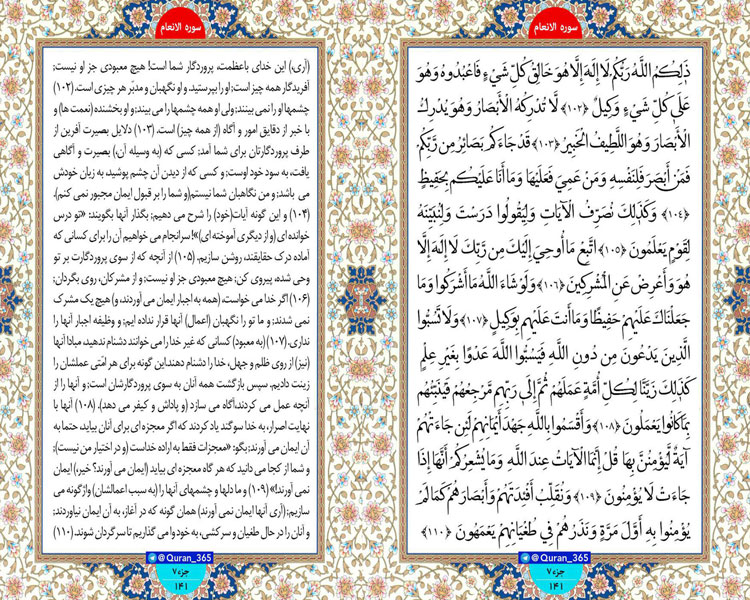 سوره الانعام
ذَٰلِكُمُ اللَّهُ رَبُّكُمْ لَا إِلَٰهَ إِلَّا هُوَ خَالِقُ كُلِّ شَيْءٍ فَاعْبُدُوهُ وَهُوَ
عَلَىٰ كُلِّ شَيْءٍ وَكِيلٌ ﴿۱۰۲﴾ لَا تُدْرِكُهُ الْأَبْصَارُ وَهُوَ يُدْرِكُ
الْأَبْصَارَ وَهُوَ اللَّطِيفُ الْخَبِيرُ ﴿۱۰۳﴾ قَدْ جَاءَكُمْ بَصَائِرُ مِنْ رَبِّكُمْ
فَمَنْ أَبْصَرَ فَلِنَفْسِهِ وَمَنْ عَمِيَ فَعَلَيْهَا وَمَا أَنَا عَلَيْكُمْ بِحَفِيظٍ
﴿۱۰۴﴾ وَكَذَٰلِكَ نُصَرِّفُ الْآيَاتِ وَلِيَقُولُوا دَرَسْتَ وَلِنُبَيِّنَهُ
لِقَوْمٍ يَعْلَمُونَ ﴿۱۰۵﴾ اتَّبِعْ مَا أُوحِيَ إِلَيْكَ مِنْ رَبِّكَ لَا إِلَٰهَ إِلَّا
هُوَ وَأَعْرِضْ عَنِ الْمُشْرِكِينَ ﴿۱۰۶﴾ وَلَوْ شَاءَ اللَّهُ مَا أَشْرَكُوا وَمَا
جَعَلْنَاكَ عَلَيْهِمْ حَفِيظًا وَمَا أَنْتَ عَلَيْهِمْ بِوَكِيلٍ ﴿۱۰۷﴾ وَلَا تَسُبُّوا
الَّذِينَ يَدْعُونَ مِنْ دُونِ اللَّهِ فَيَسُبُّوا اللَّهَ عَدْوًا بِغَيْرِ عِلْمٍ
كَذَٰلِكَ زَيَّنَّا لِكُلِّ أُمَّةٍ عَمَلَهُمْ ثُمَّ إِلَىٰ رَبِّهِمْ مَرْجِعُهُمْ فَيُنَبِّئُهُمْ
بِمَا كَانُوا يَعْمَلُونَ ﴿۱۰۸﴾ وَأَقْسَمُوا بِاللَّهِ جَهْدَ أَيْمَانِهِمْ لَئِنْ جَاءَتْهُمْ
آيَةٌ لَيُؤْمِنُنَّ بِهَا قُلْ إِنَّمَا الْآيَاتُ عِنْدَ اللَّهِ وَمَا يُشْعِرُكُمْ أَنَّهَا إِذَا
جَاءَتْ لَا يُؤْمِنُونَ ﴿۱۰۹﴾ وَنُقَلِّبُ أَفْئِدَتَهُمْ وَأَبْصَارَهُمْ كَمَا لَمْ
يُؤْمِنُوا بِهِ أَوَّلَ مَرَّةٍ وَنَذَرُهُمْ فِي طُغْيَانِهِمْ يَعْمَهُونَ ﴿۱۱۰﴾
@Quran_365
جزء ۷
۱۴۱
سوره الانعام
(آری) این خدای باعظمت، پروردگار شما است! هیچ معبودی جز او نیست;
آفریدگار همه چیز است; او را بپرستید. و او نگهبان و مدبّر هر چیزی است. (۱۰۲)
چشمها او را نمی بینند; ولی او همه چشمها را می بیند; و او بخشنده (نعمت ها) و
با خبر از دقایق امور و آگاه (از همه چیز) است. (۱۰۳) دلایل بصیرت آفرین از
طرف پروردگارتان برای شما آمد; کسی که (به وسیله آن،) بصیرت و آگاهی
یافت، به سود خود اوست; و کسی که از دیدن آن چشم پوشید، به زیان خودش
می باشد; و من نگاهبان شما نیستم(و شما را بر قبول ایمان مجبور نمی کنم).
(۱۰۴) و این گونه آیات(خود) را شرح می دهیم; بگذار آنها بگویند: «تو درس
خوانده ای (و از دیگری آموخته ای)»! سرانجام می خواهیم آن را برای کسانی که
آماده درک حقایقند، روشن سازیم. (۱۰۵) از آنچه که از سوی پروردگارت بر تو
وحی شده، پیروی کن; هیچ معبودی جز او نیست; و از مشرکان، روی بگردان;
(۱۰۶) اگر خدا می خواست، (همه به اجبار ایمان می آوردند، و) هیچ یک مشرک
نمی شدند; و ما تو را نگهبان (اعمال) آنها قرار نداده ایم; و وظیفه اجبار آنها را
نداری. (۱۰۷) (به معبود) کسانی که غیر خدا را می خوانند دشنام ندهید، مبادا آنها
(نیز) از روی ظلم و جهل، خدا را دشنام دهند!این گونه برای هر امّتی عملشان را
زینت دادیم. سپس بازگشت همه آنان به سوی پروردگارشان است; و آنها را از
آنچه عمل می کردند،آگاه می سازد (و پاداش و کیفر می دهد). (۱۰۸) آنها با
نهایت اصرار، به خدا سوگند یاد کردند که اگر معجزه ای برای آنان بیاید، حتما به
آن ایمان می آورند; بگو: «معجزات فقط به اراده خداست (و در اختیار من نیست);
و شما از کجا می دانید که هر گاه معجزه ای بیاید (ایمان می آورند؟ خیر،) ایمان
نمی آورند!» (۱۰۹) و ما دلها و چشمهای آنها را (به سبب اعمالشان) واژگونه می
سازیم; (آری آنها ایمان نمی آورند) همان گونه که در آغاز، به آن ایمان نیاوردند;
و آنان را در حال طغیان و سرکشی، به خود وا می گذاریم تا سرگردان شوند. (۱۱۰)
@Quran_365
جزء ۷
۱۴۱